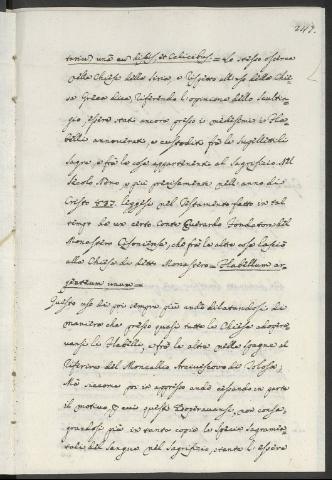 247.
tariu, unà cu discis, et Calicibus = Lo stesso osserva
nella Chiesa della Siria, e rispetto all'uso della Chie
sa Greca dice, riferendo l'opinione dello
gio, essere stati ancora presso i medesimi i Fla
belli annoverati, e custoditi frà le Suppellettili
Sagre, e frà le cose appartenenti al Sagrifizio. Nel
Secolo Nono, e più precisamente nell'anno di
Cristo 837. leggesi nel Testamento fatto in tal
tempo da un certo Conte Everardo Fondatore del
Monastero Cisoniense, che frà le altre cose lasciò
alla Chiesa di detto Monastero = Flabellum ar
genteum unum =
Questo uso di poi sempre più andò dilatandosi di
maniera che presso quasi tutte le Chiese adopera
vansi li Flabelli, e frà le altre nella Spagna al
riferire del Moncallio Arcivescovo di Tolosa;
Mà siccome poi in appresso andò cessando in parte
il motivo, p cui questi adopravansi, non consa
grandosi più in tanto copia le Specie Sagramen
tali del Sangue nel Sagrifizio, stante l'essere